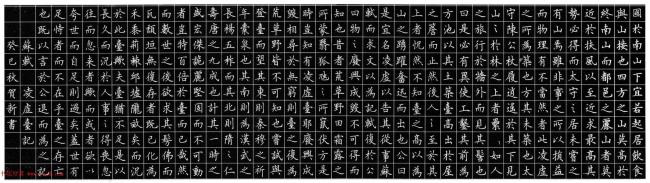 國於南山下宜若起居飲食
與山接也四方之山莫高於
終南山而都邑之麗山者莫
近於扶風以至近求最高其
勢必得而太守之居未嘗知
有山焉雖非事之所以損益
而物理有不當然者此凌虛
之所為築也方其未築也太
守陳公杖履逍遙於其下見
山之出於林木之上者纍纍如人
之旅行於牆外而見其髻也
曰是必有異使工鑿其前為
方池以其土築臺高出於屋
之簷而止然後人之至於其
上者恍然不知臺之高而以為
山之踴躍奮迅而出也公曰
是宜名凌虛以告其從事蘇
軾而求文以為記軾復於公
曰物之廢興成毀不可得而
知也昔者荒草野田霜露之
所蒙翳狐虺之所竄伏方是
時豈知有凌虛臺耶廢興成
毀相尋於無窮則臺之復為
荒草野田皆不可知也嘗試與公
登臺而望其東則秦穆之祈
年橐泉也其南則漢武之
長楊五柞而其北則隋之仁
壽唐之九成也計其一時之
盛宏傑詭麗堅固而不可動
者豈特百倍於臺而已哉然而
數世之後欲求其彷彿而破
瓦頹垣無復存者既已化為
禾黍荊棘丘墟隴畝矣而況
於此臺歟夫臺猶不足恃以
長久而況於人事之得喪忽
往而忽來者歟而或者欲以
夸世而自足則過矣蓋世有
足恃者而不在乎臺之存亡
也既以言於公退而為之記
蘇軾凌虛臺記
癸巳秋賀新書